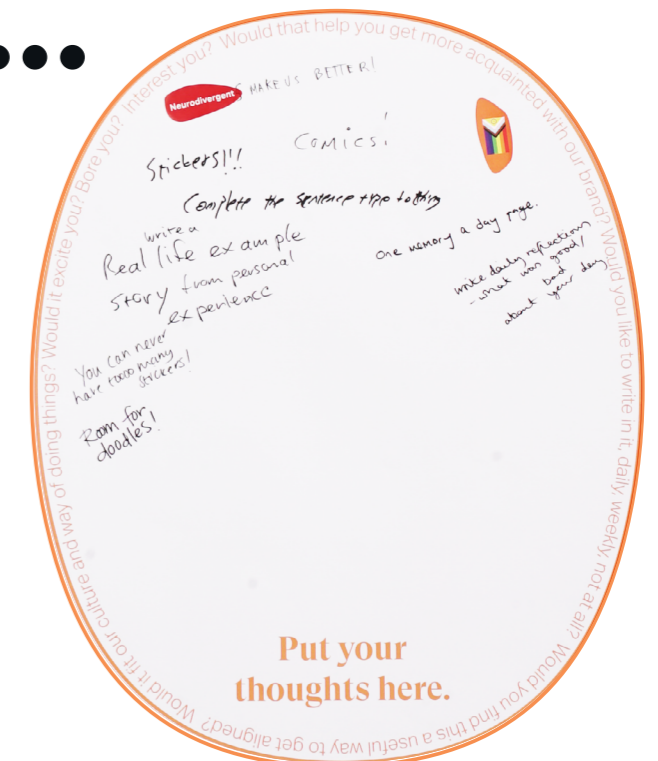 Bore you? Interest you? Would that help you get more acquainted with our brand? Would you like to write in it, daily, weekly, not at all? Would you find this a useful way to get aligned? Would it fit our culture and way of doing things? Would it excite you?
Neurodivergent
S MAKE US BETTER!
Comics!
Stickers!!!
Complete the sentence type to thing
write a
Real life example
story from personal
experience
one memory a day page.
write daily reflections
- what was good/
bad
about your day
You can never
have toooo many
stickers!
Room for
doodles!
Put your
thoughts here.